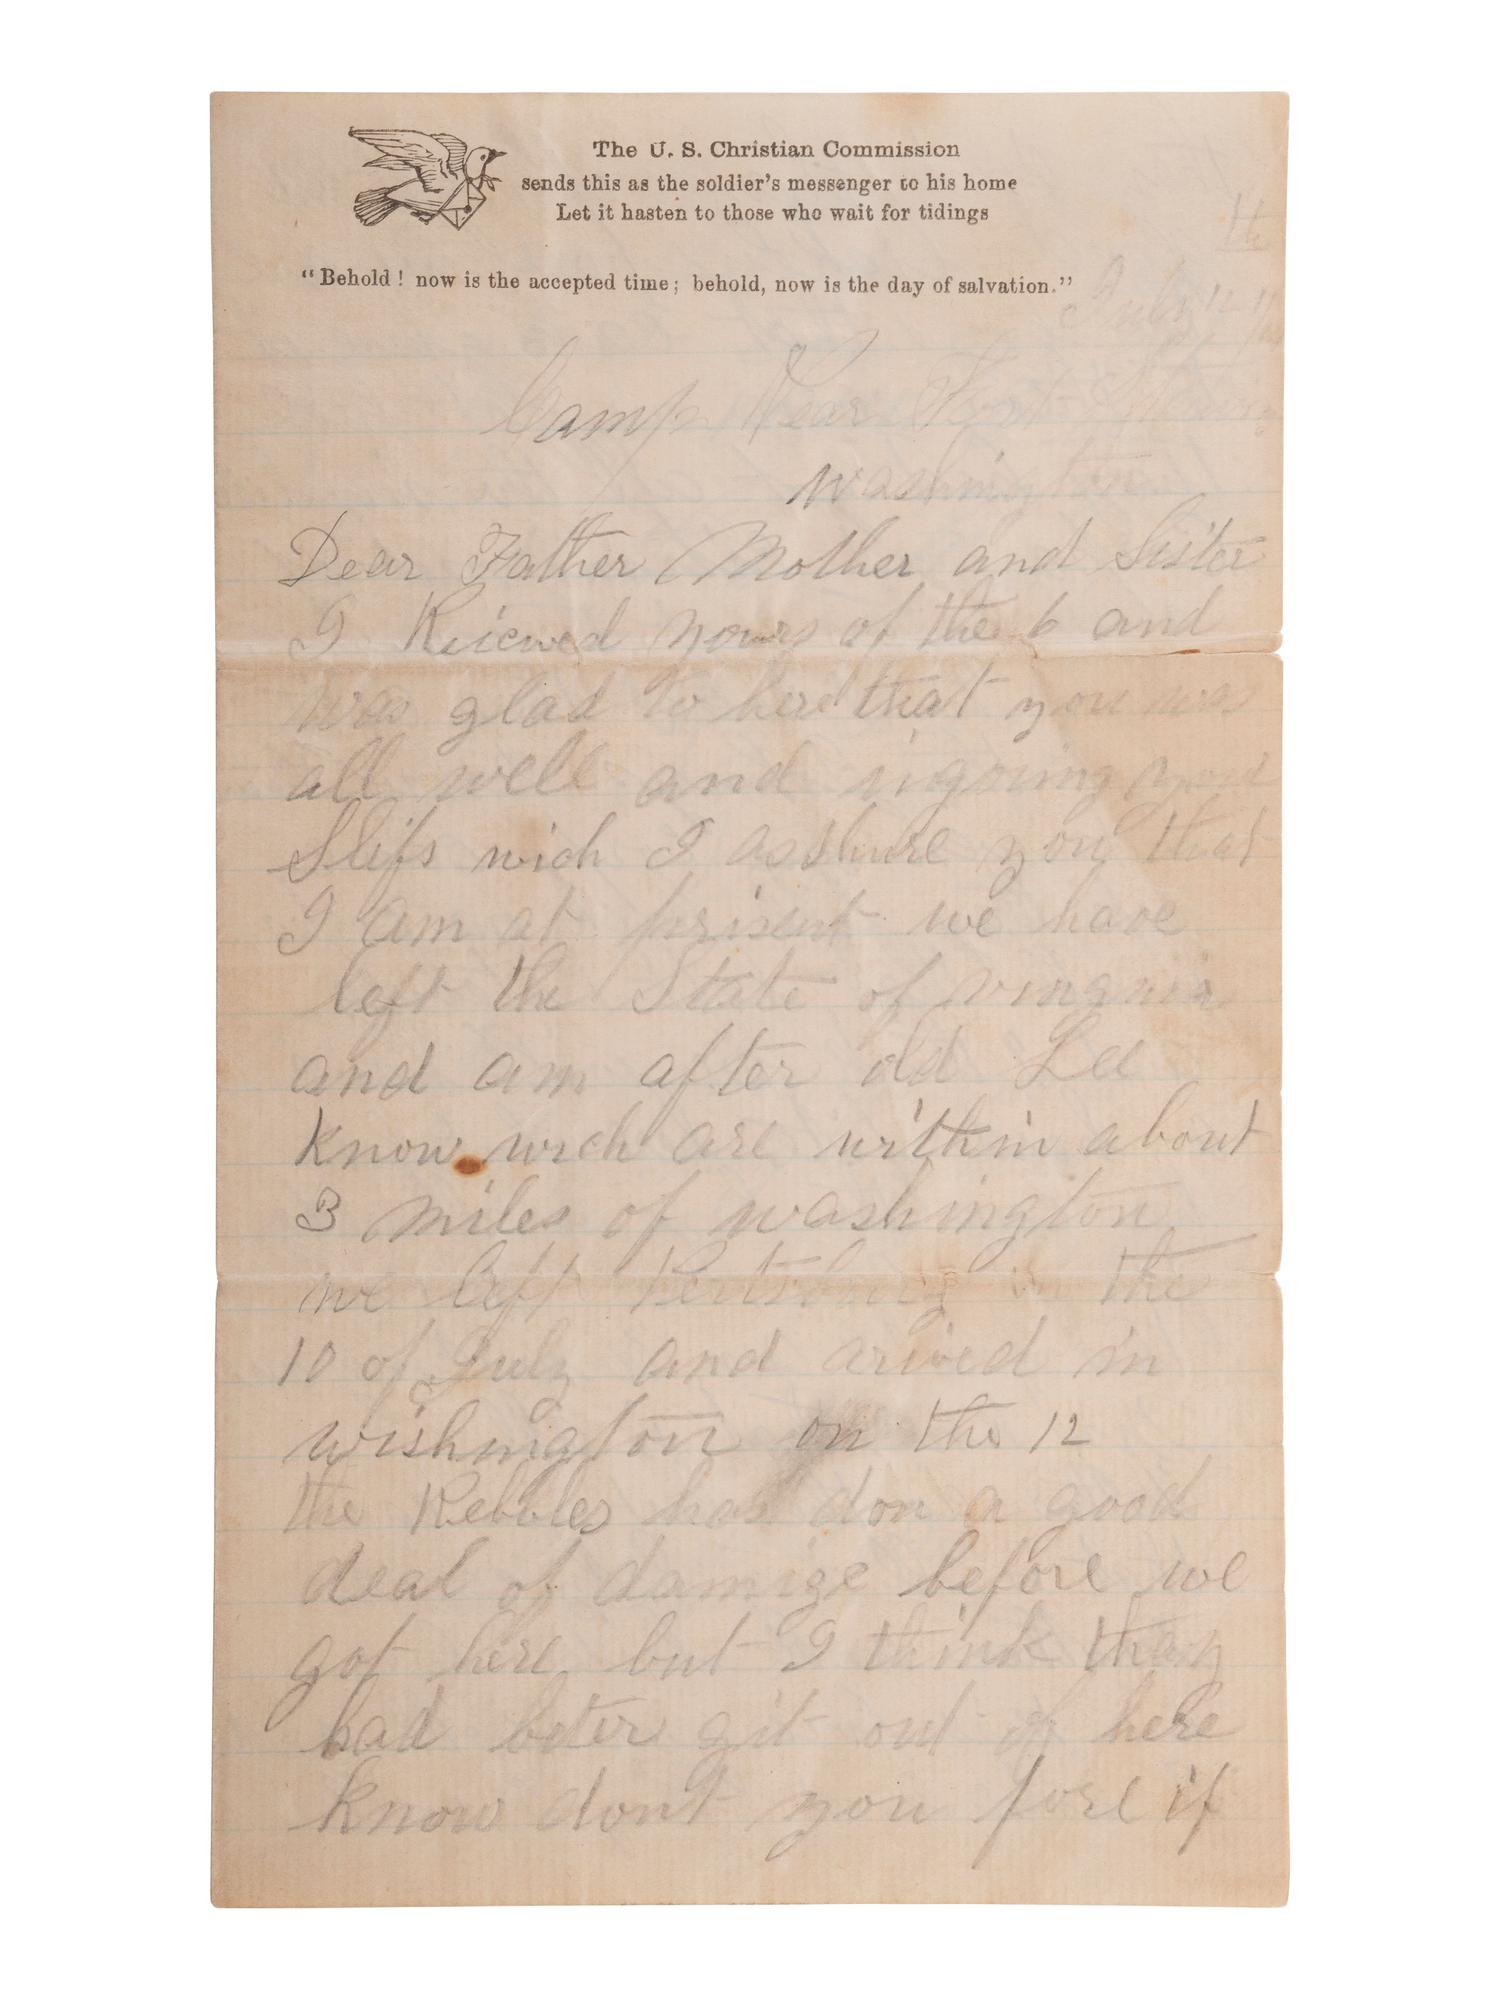 The U. S. Christian Commission
sends this as the soldier's messenger to his home
Let it hasten to those who wait for tidings
"Behold! now is the accepted time; behold, now is the day of salvation."
July 12
Camp Near Fort
washington
Dear Father Mother and Sister
I Reicewed yours of the 6 and
was glad to here that you was
all well and ingoing your
Slifs wich I asshure you that
I am at prisent we have
left the State of vingnia
and am after old Lee
know wich are within about
3 miles of washington
we left Pertsburg in the
10 of July and arived in
wishington on the 12
the Rebbles has don a good
deal of damige before we
got here but I think thay
had beter git out of here
know dont you fore if